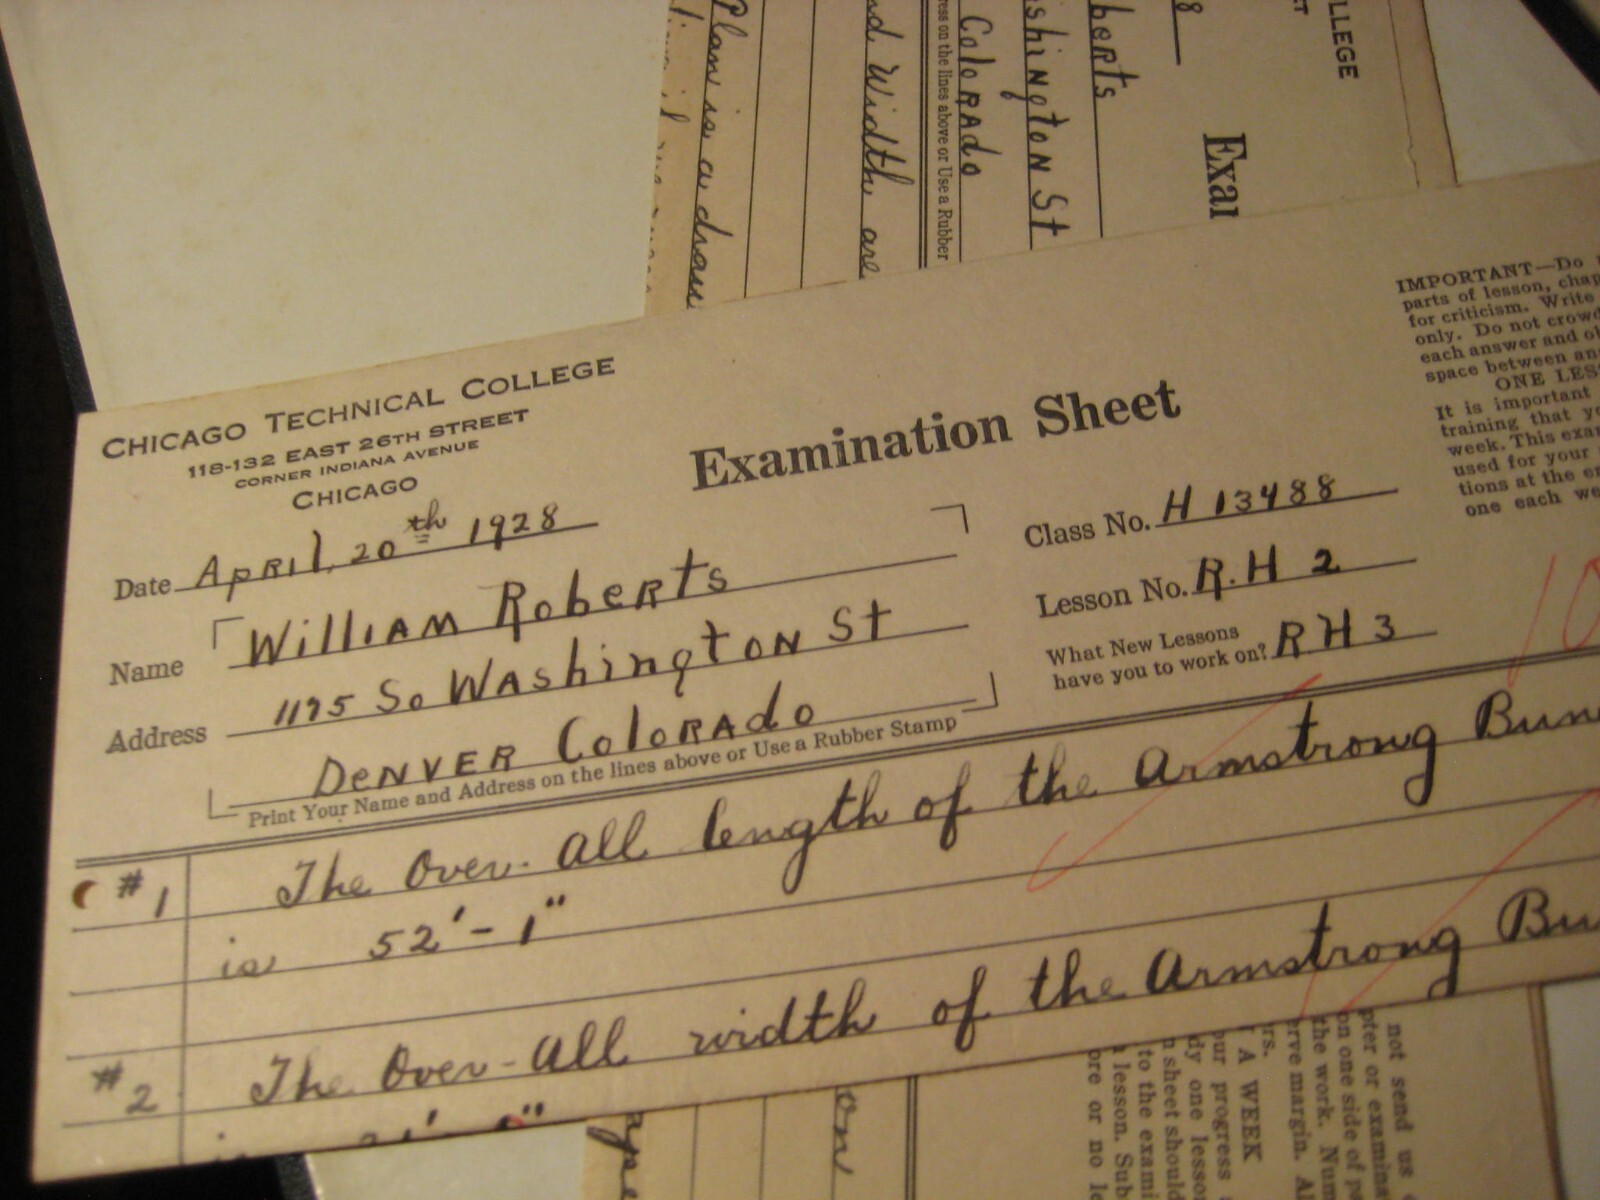 CHICAGO TECHNICAL COLLEGE
118-132 EAST 26TH STREET
CORNER INDIANA AVENUE
CHICAGO
Examination Sheet
Date APRIl, 20th 1928
Name WIllIAM RobERts
Address 1175 So WAshingtoN St
DENVER ColoRAdo
Print Your Name and Address on the lines above or Use a Rubber Stamp
Class No. H 13488
Lesson No. R.H 2
What New Lessons
have you to work on? RH 3
IMPORTANT—Do
parts of lesson, chap
for criticism. Write
only. Do not crowd
each answer and
space between
ONE LES
It is important
training that
week. This exa
used for your
tions at the
one each we
10
#1 The Over-all length of the Armstrong Bun
is 52'-1"
#2 The Over-all width of the Armstrong Bu
LLEGE
8
Exa
berts
shingtoN St
ColoRAdo
ress on the lines above or Use a Rubber
nd Width are
Plan is a draw
not send us
pter or examina
on one side of
the work. Num
erve margin.
rs.
A WEEK
our progress
dy one lesso
sheet should
to the exami
lesson. Sub
ore or no
on